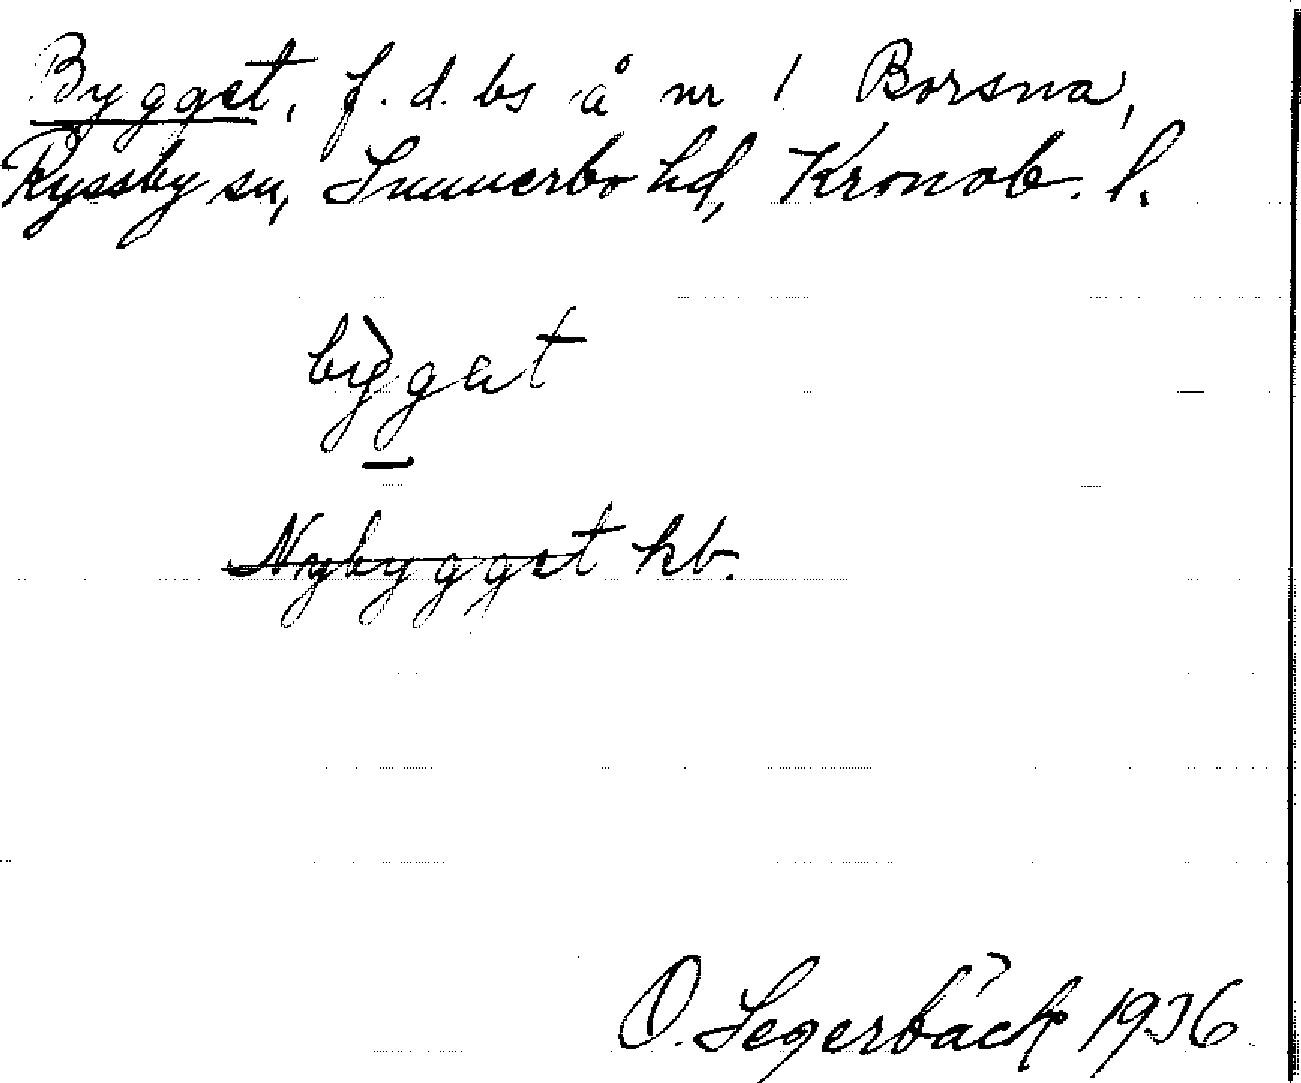 Bygget, f.d. bs å nr 1 Borsna,
Ryssby sn, Sunnerbo hd, Kronob. l.
bỳgat
Nybygget hb.
O. Segerbäck 1936